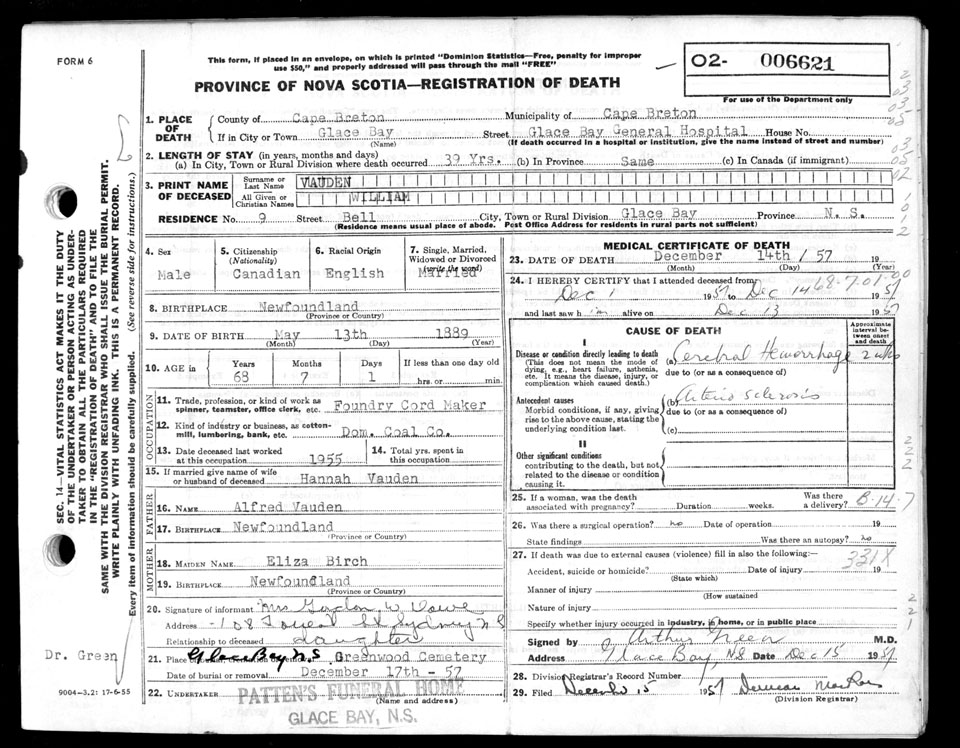 FORM 6
This form, if placed in an envelope, on which is printed "Dominion Statistics—Free, penalty for improper
use $50," and properly addressed will pass through the mail "FREE"
PROVINCE OF NOVA SCOTIA—REGISTRATION OF DEATH
02- 006621
For use of the Department only
SEC. 14—VITAL STATISTICS ACT MAKES IT THE DUTY
OF THE UNDERTAKER OR PERSON ACTING AS UNDER-
TAKER TO OBTAIN ALL THE PARTICULARS REQUIRED
IN THE "REGISTRATION OF DEATH" AND TO FILE THE
SAME WITH THE DIVISION REGISTRAR WHO SHALL ISSUE THE BURIAL PERMIT.
WRITE PLAINLY WITH UNFADING INK. THIS IS A PERMANENT RECORD.
Every item of information should be carefully supplied. (See reverse side for instructions.)
1. PLACE OF DEATH
County of Cape Breton Municipality of Cape Breton
If in City or Town Glace Bay Street Glace Bay General Hospital House No.
(Name) (If death occurred in a hospital or institution, give the name instead of street and number)
2. LENGTH OF STAY (in years, months and days)
(a) In City, Town or Rural Division where death occurred 39 Yrs. (b) In Province Same (c) In Canada (if immigrant)
3. PRINT NAME OF DECEASED
Surname or Last Name VAUDEN
All Given or Christian Names WILLIAM
RESIDENCE No. 9 Street Bell City, Town or Rural Division Glace Bay Province N. S.
(Residence means usual place of abode. Post Office Address for residents in rural parts not sufficient)
4. Sex Male
5. Citizenship (Nationality) Canadian
6. Racial Origin English
7. Single, Married, Widowed or Divorced (write the word) Married
8. BIRTHPLACE Newfoundland
(Province or Country)
9. DATE OF BIRTH May 13th 1889
(Month) (Day) (Year)
10. AGE in Years 68 Months 7 Days 1 If less than one day old hrs. or min.
OCCUPATION
11. Trade, profession, or kind of work as spinner, teamster, office clerk, etc. Foundry Cord Maker
12. Kind of industry or business, as cotton-mill, lumbering, bank, etc. Dom. Coal Co.
13. Date deceased last worked at this occupation 1955
14. Total yrs. spent in this occupation
15. If married give name of wife or husband of deceased Hannah Vauden
FATHER
16. NAME Alfred Vauden
17. BIRTHPLACE Newfoundland
(Province or Country)
MOTHER
18. MAIDEN NAME Eliza Birch
19. BIRTHPLACE Newfoundland
(Province or Country)
20. Signature of informant Mrs Gordon W.
Address -108 St Sydney N S
Relationship to deceased daughter
21. Place of burial, cremation or removal Glace Bay N S Greenwood Cemetery
Date of burial or removal December 17th - 57
22. UNDERTAKER PATTEN'S FUNERAL HOME
(Name and address)
GLACE BAY, N.S.
Dr. Green
9004-3.21 17-6-55
MEDICAL CERTIFICATE OF DEATH
23. DATE OF DEATH December 14th / 57 19
(Month) (Day) (Year)
24. I HEREBY CERTIFY that I attended deceased from
Dec 1 1957 to Dec 14 1957
68-7.01-00
and last saw h im alive on Dec 13 1957
CAUSE OF DEATH
Approximate interval between onset and death
I
Disease or condition directly leading to death
(This does not mean the mode of dying, e.g., heart failure, asthenia, etc. It means the disease, injury, or complication which caused death.)
(a) Cerebral Hemorrhage 2 wks
due to (or as a consequence of)
Antecedent causes
Morbid conditions, if any, giving rise to the above cause, stating the underlying condition last.
(b) Arterio sclerosis
due to (or as a consequence of)
(c)
II
Other significant conditions
contributing to the death, but not related to the disease or condition causing it.
25. If a woman, was the death associated with pregnancy? Duration weeks. Was there a delivery?
B-14-7
26. Was there a surgical operation? no Date of operation 19
State findings Was there an autopsy? no
27. If death was due to external causes (violence) fill in also the following:—
331X
Accident, suicide or homicide? Date of injury 19
(State which)
Manner of injury
(How sustained
Nature of injury
Specify whether injury occurred in industry, in home, or in public place
Signed by Arthur Green M.D.
Address Glace Bay, N.S Date Dec 15 1957
28. Division Registrar's Record Number
29. Filed December 15 1957 Duncan MacRae
(Division Registrar)